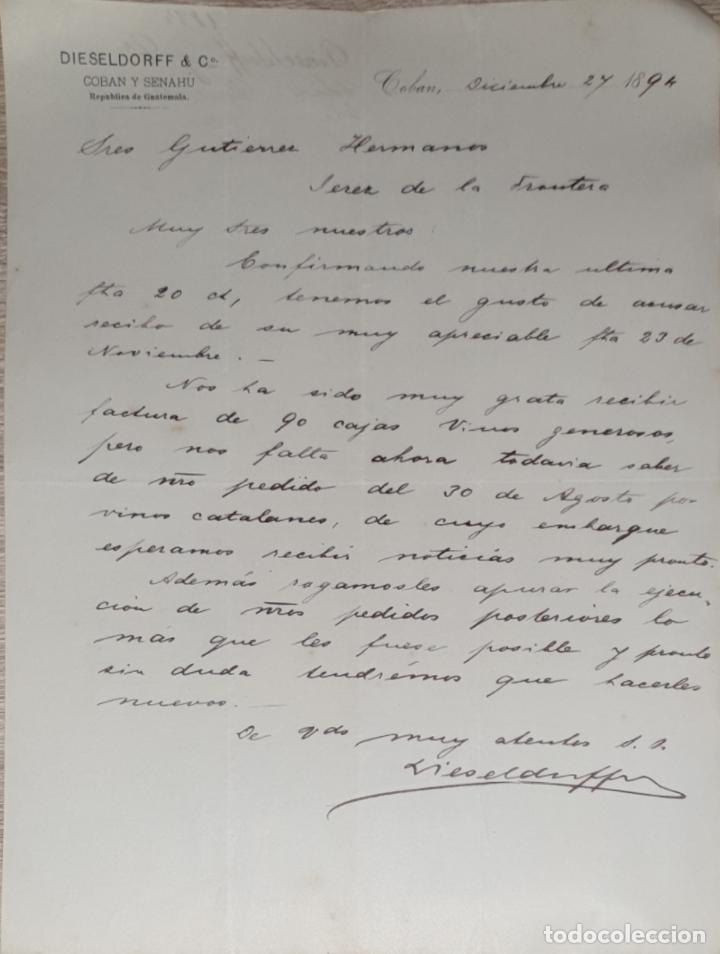 DIESELDORFF & Co.
COBAN Y SENAHÚ
Republica de Guatemala.
Coban, Diciembre 27 1894
Sres Gutierrez Hermanos
Jerez de la Frontera
Muy Sres nuestros:
Confirmando nuestra ultima
fha 20 ct, tenemos el gusto de acusar
recibo de su muy apreciable fha 23 de
Noviembre. —
Nos ha sido muy grata recibir
factura de 90 cajas Vinos generosos,
pero nos falta ahora todavia saber
de nro pedido del 30 de Agosto por
vinos catalanes, de cuyo embarque
esperamos recibir noticias muy pronto.
Además rogamosles apurar la ejecu-
ción de nros pedidos posteriores lo
más que les fuese posible y pronto
sin duda tendrémos que hacerles
nuevos. —
De Vdes muy atentos S. S.
Dieseldorff
todocoleccion